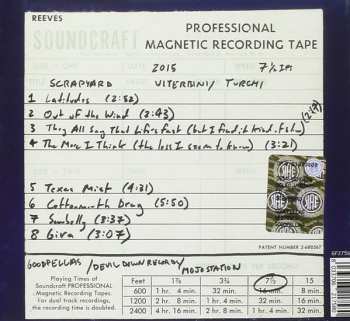 REEVES
SOUNDCRAFT
PROFESSIONAL
MAGNETIC RECORDING TAPE
2015 7½ IPS
SCRAPYARD VITERBINI/ TURCHI
1 Latitudes (2:52)
2 Out of the Wind (2:43)
3 They All Say That Life's Fast (but I find it kind of slow) (2:17)
4 The More I Think (the less I seem to know) (3:21)
5 Texas Mist (4:31)
6 Cottonmouth Drag (5:50)
7 (3:37)
8 Gira (3:07)
PATENT NUMBER 2-685067
GOODFELLAS /DEVIL DOWN RECORDS/ MOJO STATION
Playing Times of
Soundcraft PROFESSIONAL
Magnetic Recording Tapes.
For dual track recordings,
the recording time is doubled.
Feet 1⅞ 3¾ 7½ 15
600 1 hr. 4 min. 32 min. 16 min. 8 min.
1200 2 hr. 8 min. 1 hr. 4 min. 32 min. 16 min.
2400 4 hr. 16 min. 2 hr. 8 min. 1 hr. 4 min. 32 min.